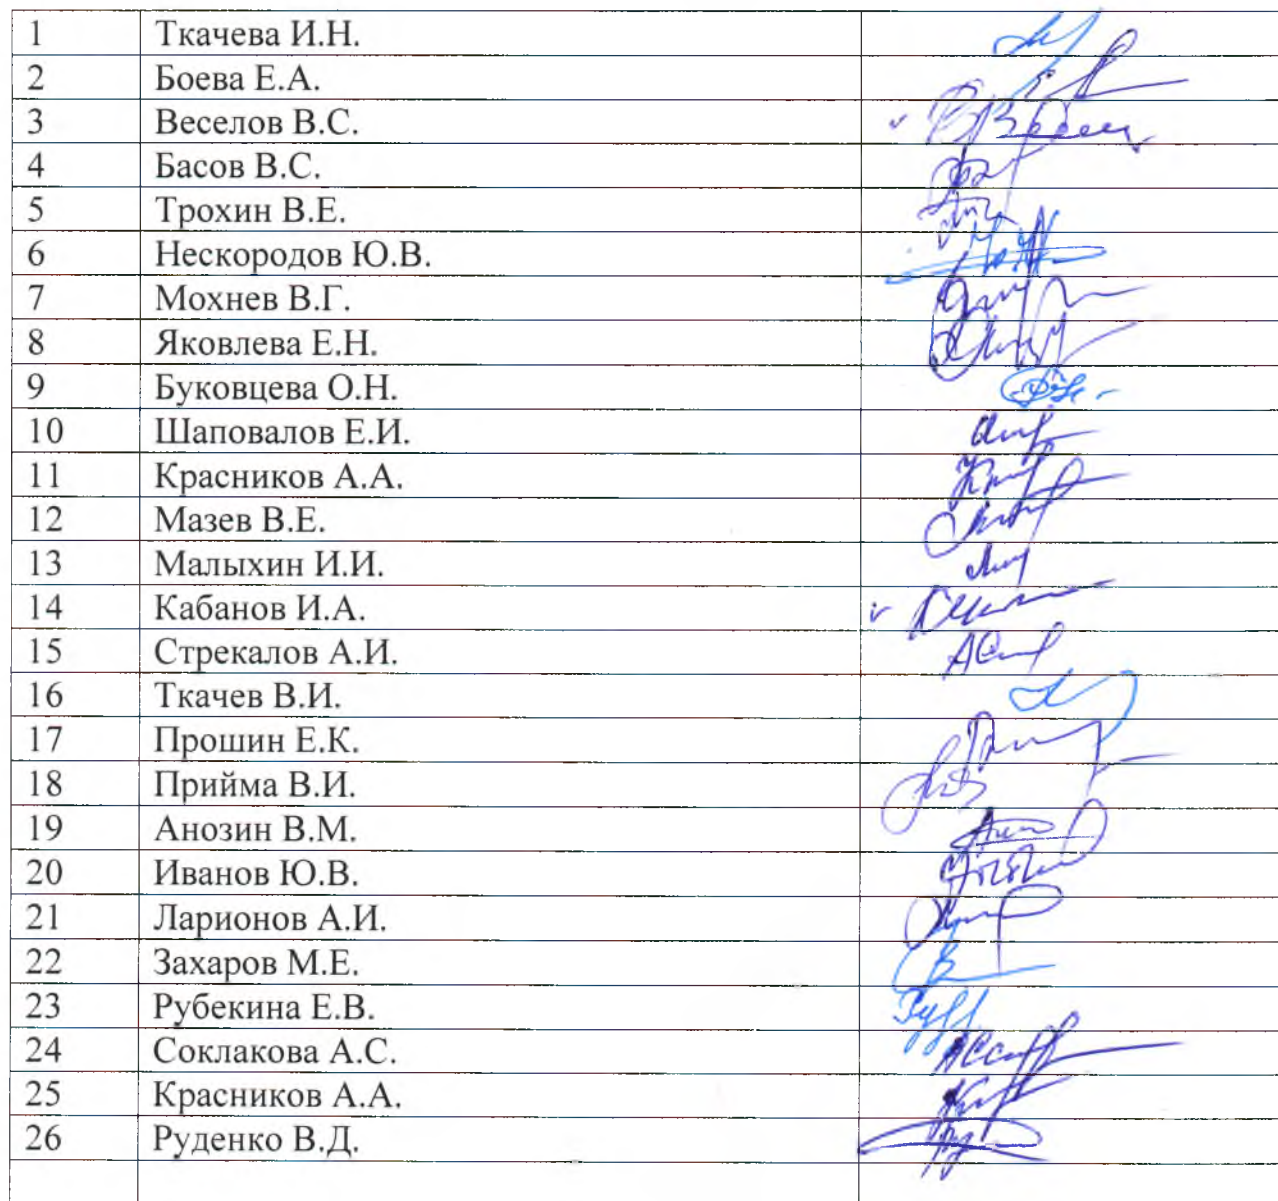 1 Ткачева И.Н.
2 Боева Е.А.
3 Веселов В.С.
4 Басов В.С.
5 Трохин В.Е.
6 Нескородов Ю.В.
7 Мохнев В.Г.
8 Яковлева Е.Н.
9 Буковцева О.Н.
10 Шаповалов Е.И.
11 Красников А.А.
12 Мазев В.Е.
13 Малыхин И.И.
14 Кабанов И.А.
15 Стрекалов А.И.
16 Ткачев В.И.
17 Прошин Е.К.
18 Прийма В.И.
19 Анозин В.М.
20 Иванов Ю.В.
21 Ларионов А.И.
22 Захаров М.Е.
23 Рубекина Е.В.
24 Соклакова А.С.
25 Красников А.А.
26 Руденко В.Д.